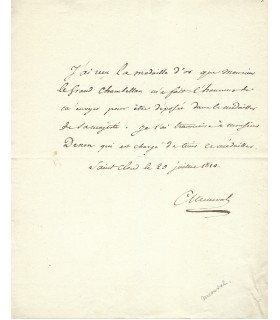 J'ai reçu la médaille d'or que Monsieur
le Grand Chambellan m'a fait l'honneur de
m'envoyer pour être déposée dans le médailler
de sa majesté. Je l'ai transmise à monsieur
Denon qui est chargé de tenir ce médailler
Saint Cloud le 20 juillet 1810.